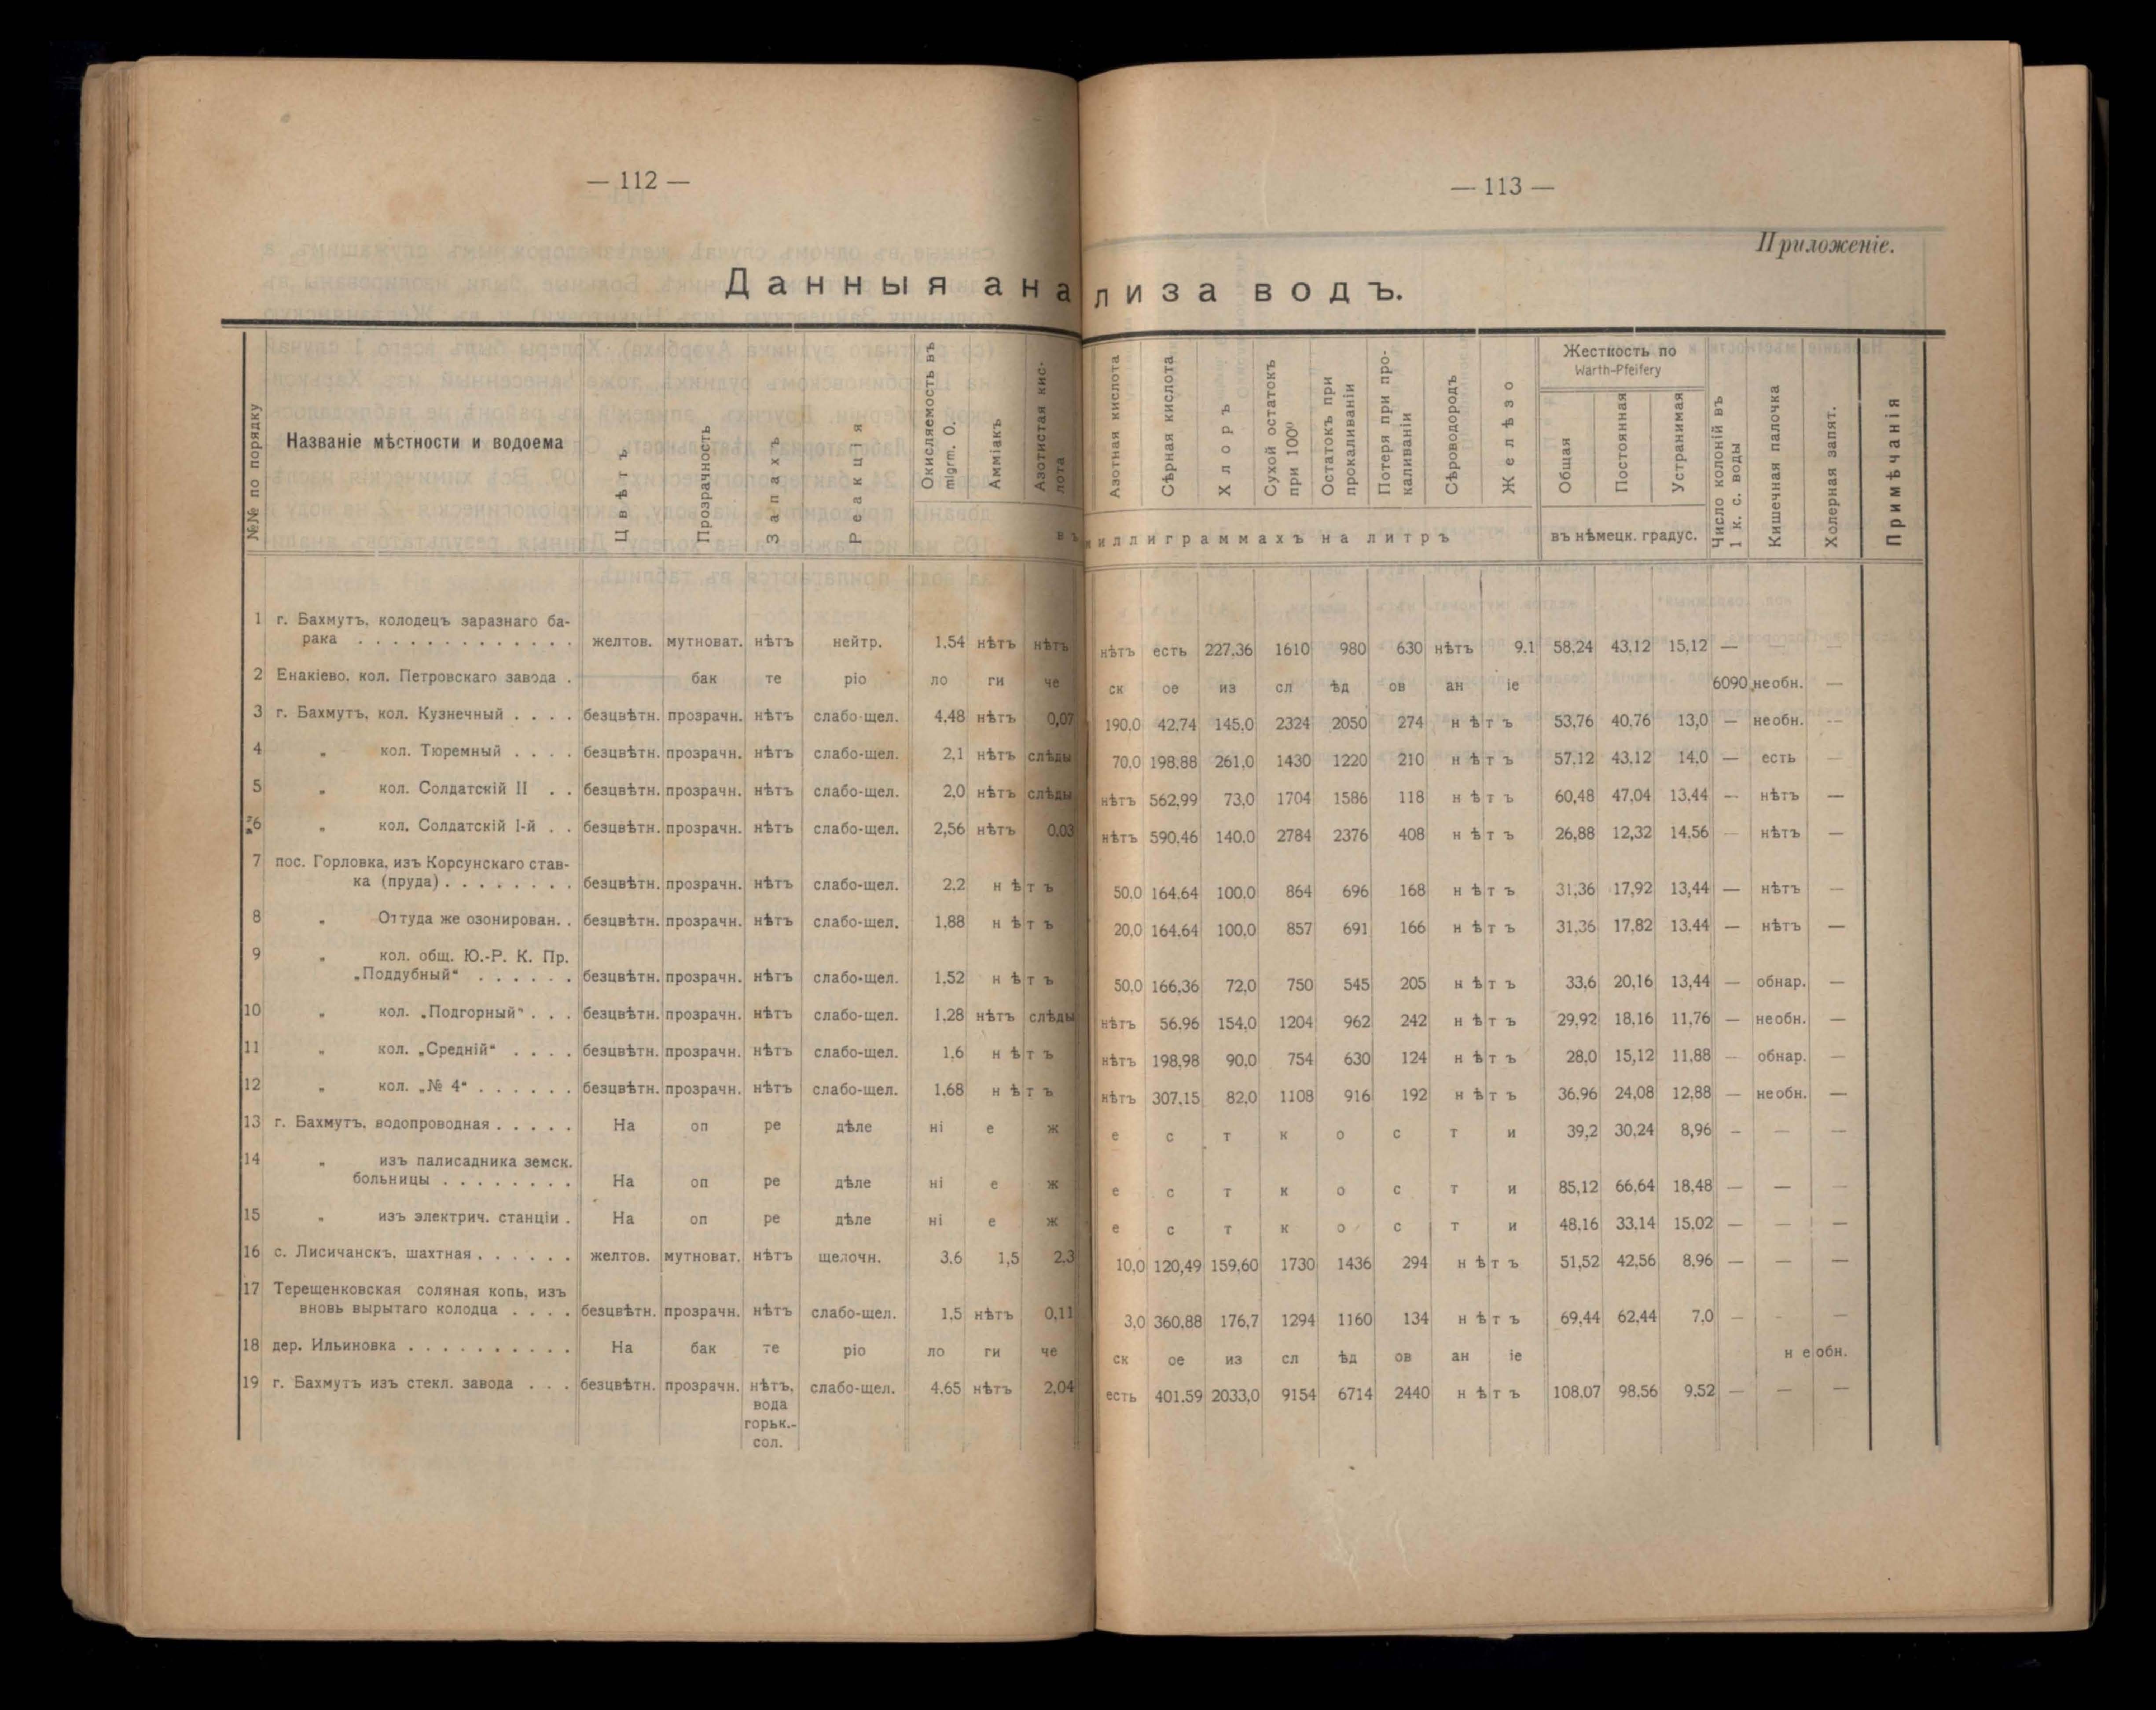 — 112 —
— 113 —
Приложеніе.
Данныя анализа водъ.
№№ по порядку
Названіе мѣстности и водоема
Цвѣтъ
Прозрачность
Запахъ
Реакція
Окисляемость въ migrm. O.
Амміакъ
Азотистая кислота
Азотная кислота
Сѣрная кислота
Хлоръ
Сухой остатокъ при 100⁰
Остатокъ при прокаливаніи
Потеря при прокаливаніи
Сѣроводородъ
Желѣзо
въ миллиграммахъ на литръ
Жесткость по
Warth-Pfeifery
Общая
Постоянная
Устранимая
въ нѣмецк. градус.
Число колоній въ 1 к. с. воды
Кишечная палочка
Холерная запят.
Примѣчанія
1 г. Бахмутъ, колодецъ заразнаго ба-
рака . . . . . . . . . . . . . желтов. мутноват. нѣтъ нейтр. 1,54 нѣтъ нѣтъ нѣтъ есть 227,36 1610 980 630 нѣтъ 9.1 58,24 43,12 15,12 — — —
2 Енакіево, кол. Петровскаго завода . бак те ріо ло ги че ск ое из сл ѣд ов ан іе 6090 необн. —
3 г. Бахмутъ, кол. Кузнечный . . . . безцвѣтн. прозрачн. нѣтъ слабо-щел. 4,48 нѣтъ 0,07 190,0 42,74 145,0 2324 2050 274 нѣтъ 53,76 40,76 13,0 — необн. —
4 „ кол. Тюремный . . . . безцвѣтн. прозрачн. нѣтъ слабо-щел. 2,1 нѣтъ слѣды 70,0 198,88 261,0 1430 1220 210 нѣтъ 57,12 43,12 14,0 — есть —
5 „ кол. Солдатскій II . . безцвѣтн. прозрачн. нѣтъ слабо-щел. 2,0 нѣтъ слѣды нѣтъ 562,99 73,0 1704 1586 118 нѣтъ 60,48 47,04 13,44 — нѣтъ —
6 „ кол. Солдатскій I-й . . безцвѣтн. прозрачн. нѣтъ слабо-щел. 2,56 нѣтъ 0,03 нѣтъ 590,46 140,0 2784 2376 408 нѣтъ 26,88 12,32 14,56 — нѣтъ —
7 пос. Горловка, изъ Корсунскаго став-
ка (пруда) . . . . . . . . безцвѣтн. прозрачн. нѣтъ слабо-щел. 2,2 нѣтъ 50,0 164,64 100,0 864 696 168 нѣтъ 31,36 17,92 13,44 — нѣтъ —
8 „ Оттуда же озонирован. . безцвѣтн. прозрачн. нѣтъ слабо-щел. 1,88 нѣтъ 20,0 164,64 100,0 857 691 166 нѣтъ 31,36 17,82 13.44 — нѣтъ —
9 „ кол. общ. Ю.-Р. К. Пр.
„Поддубный“ . . . . . . безцвѣтн. прозрачн. нѣтъ слабо-щел. 1,52 нѣтъ 50,0 166,36 72,0 750 545 205 нѣтъ 33,6 20,16 13,44 — обнар. —
10 „ кол. „Подгорный“ . . . безцвѣтн. прозрачн. нѣтъ слабо-щел. 1,28 нѣтъ слѣды нѣтъ 56.96 154,0 1204 962 242 нѣтъ 29,92 18,16 11,76 — необн. —
11 „ кол. „Средній“ . . . . безцвѣтн. прозрачн. нѣтъ слабо-щел. 1,6 нѣтъ нѣтъ 198,98 90,0 754 630 124 нѣтъ 28,0 15,12 11,88 — обнар. —
12 „ кол. „№ 4“ . . . . . . безцвѣтн. прозрачн. нѣтъ слабо-щел. 1,68 нѣтъ нѣтъ 307,15 82,0 1108 916 192 нѣтъ 36,96 24,08 12,88 — необн. —
13 г. Бахмутъ, водопроводная . . . . . На оп ре дѣле ні е ж е с т к о с т и 39,2 30,24 8,96 — — —
14 „ изъ палисадника земск.
больницы . . . . . . . . На оп ре дѣле ні е ж е с т к о с т и 85,12 66,64 18,48 — — —
15 „ изъ электрич. станціи . На оп ре дѣле ні е ж е с т к о с т и 48,16 33,14 15,02 — — —
16 с. Лисичанскъ, шахтная . . . . . . желтов. мутноват. нѣтъ щелочн. 3,6 1,5 2,3 10,0 120,49 159,60 1730 1436 294 нѣтъ 51,52 42,56 8,96 — — —
17 Терещенковская соляная копь, изъ
вновь вырытаго колодца . . . . безцвѣтн. прозрачн. нѣтъ слабо-щел. 1,5 нѣтъ 0,11 3,0 360,88 176,7 1294 1160 134 нѣтъ 69,44 62,44 7,0 — - —
18 дер. Ильиновка . . . . . . . . . . На бак те ріо ло ги че ск ое из сл ѣд ов ан іе необн.
19 г. Бахмутъ изъ стекл. завода . . . безцвѣтн. прозрачн. нѣтъ, слабо-щел. 4,65 нѣтъ 2,04 есть 401.59 2033,0 9154 6714 2440 нѣтъ 108,07 98,56 9,52 — — —
вода
горьк.-
сол.